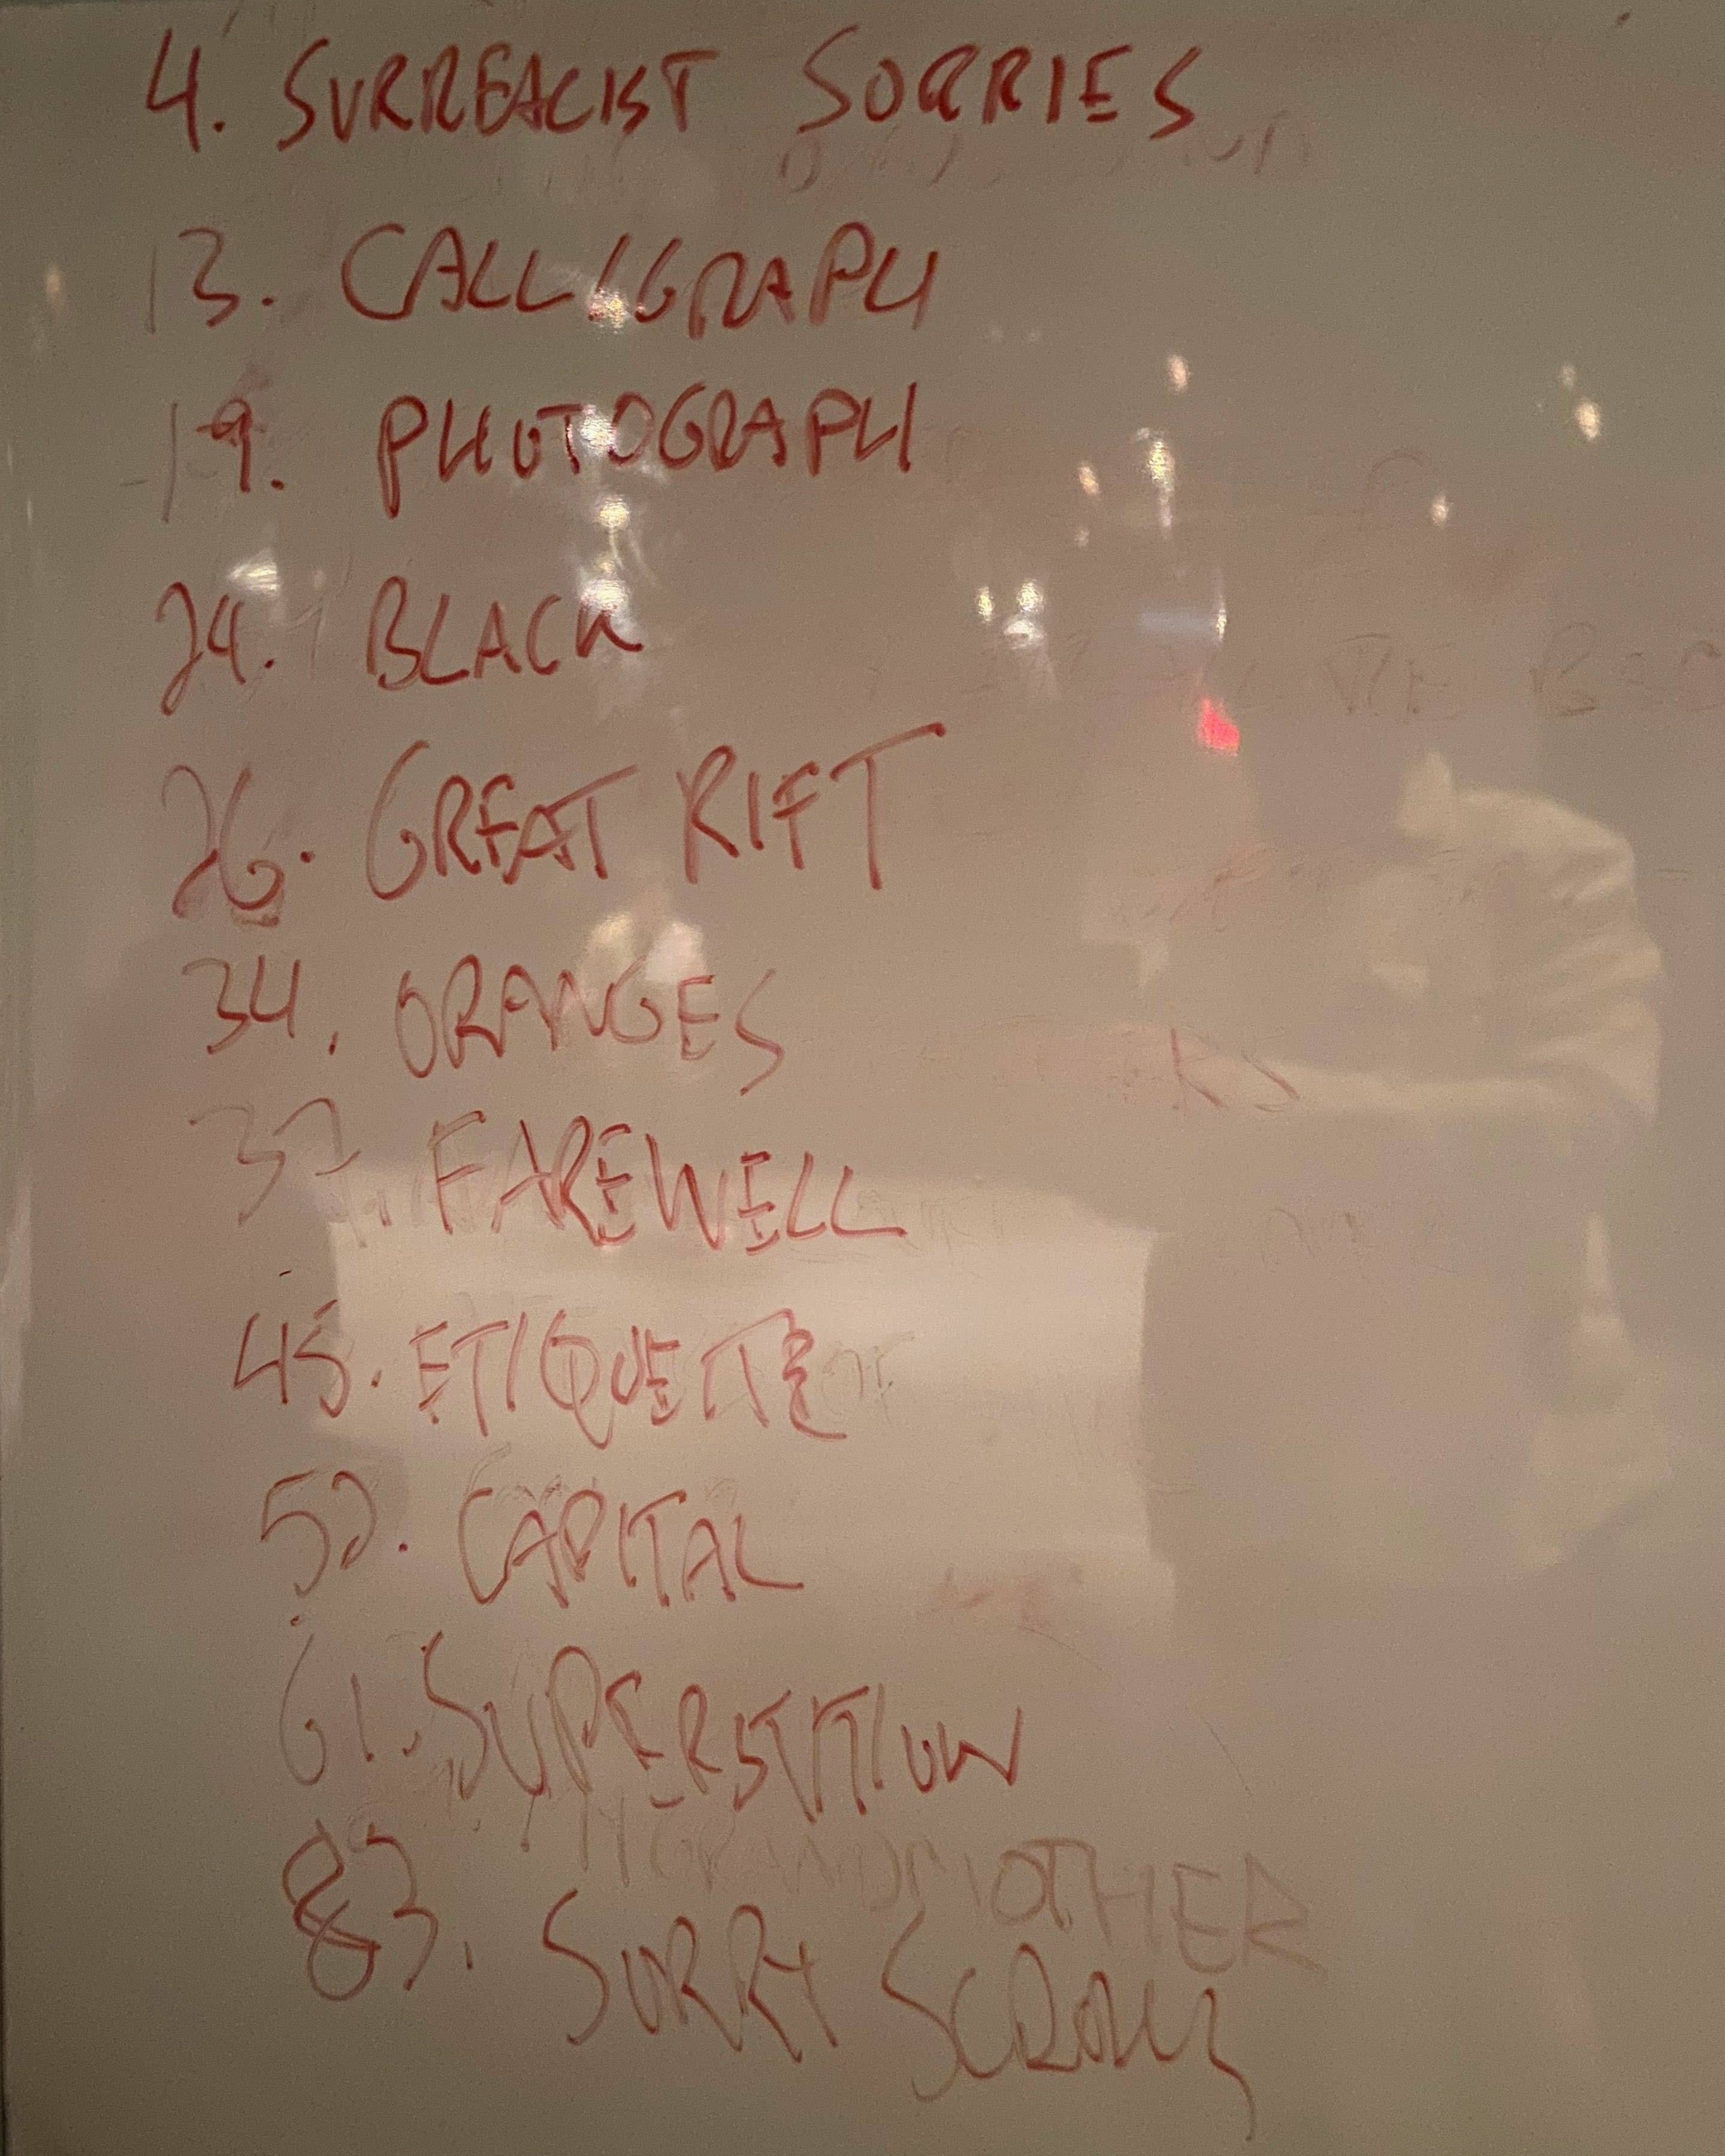 4. SURREALIST SORRIES
13. CALLIGRAPH
19. PHOTOGRAPH
24. BLACK
26. GREAT RIFT
34. ORANGES
37. FAREWELL
45. ETIQUETTE
52. CAPITAL
61. SUPERSTITION
GRANDMOTHER
83. SORRY SCROLLS